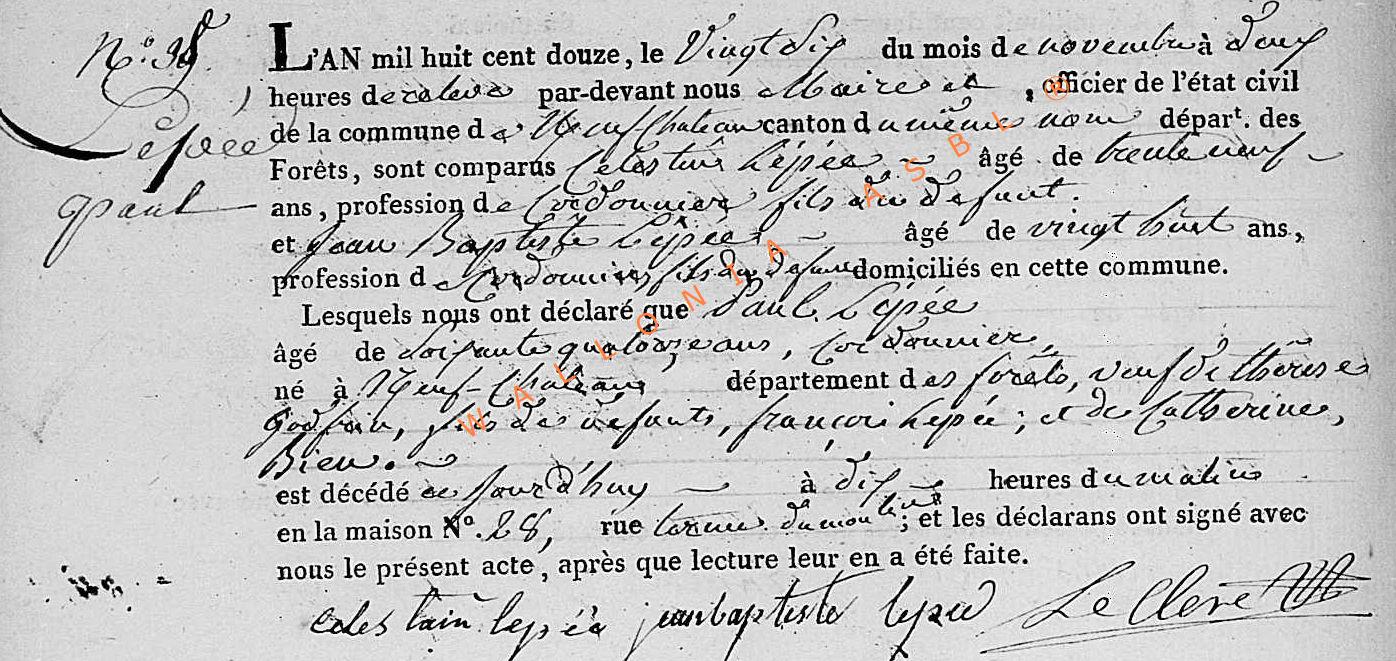 N.° 38.
Lepée
Paul
L'AN mil huit cent douze, le Vingt Six du mois de novembre à Deux
heures de relevée par-devant nous Maire et , officier de l'état civil
de la commune de Neufchateau canton du même nom départ. des
Forêts, sont comparus Celestin Lépée âgé de trente neuf
ans, profession de Cordonnier fils du defunt.
et Jean Baptiste Lépée âgé de vingt huit ans,
profession de Cordonnier fils du defunt domiciliés en cette commune.
Lesquels nous ont déclaré que Paul Lepée
âgé de Soixante quatorze ans, Cordonnier,
né à Neuf-Chateau, département des forêts, veuf de Thérèse
Godfrin, fils des defunts, françois Lepée; et de Catherine,
Bien.
est décédé ce jourd'huy à dix heures du matin
en la maison N°. 28, rue du moulin; et les déclarans ont signé avec
nous le présent acte, après que lecture leur en a été faite.
celestain lepée jean baptiste lepée Le Clere
WALLONIA ASBL ©